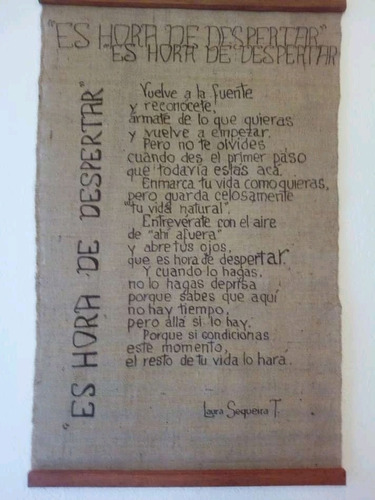 "ES HORA DE DESPERTAR"
"ES HORA DE DESPERTAR
"ES HORA DE DESPERTAR"
Vuelve a la fuente
y reconocete,
armate de lo que quieras
y vuelve a empezar.
Pero no te olvides
cuando des el primer paso
que todavia estas aca.
Enmarca tu vida como quieras,
pero guarda celosamente
"tu vida natural".
Entreverate con el aire
de "ahi afuera"
y abre tus ojos,
que es hora de despertar.
Y cuando lo hagas,
no lo hagas deprisa
porque sabes que aqui
no hay tiempo,
pero alla si lo hay.
Porque si condicionas
este momento,
el resto de tu vida lo hara.
Laura Sequeira T.